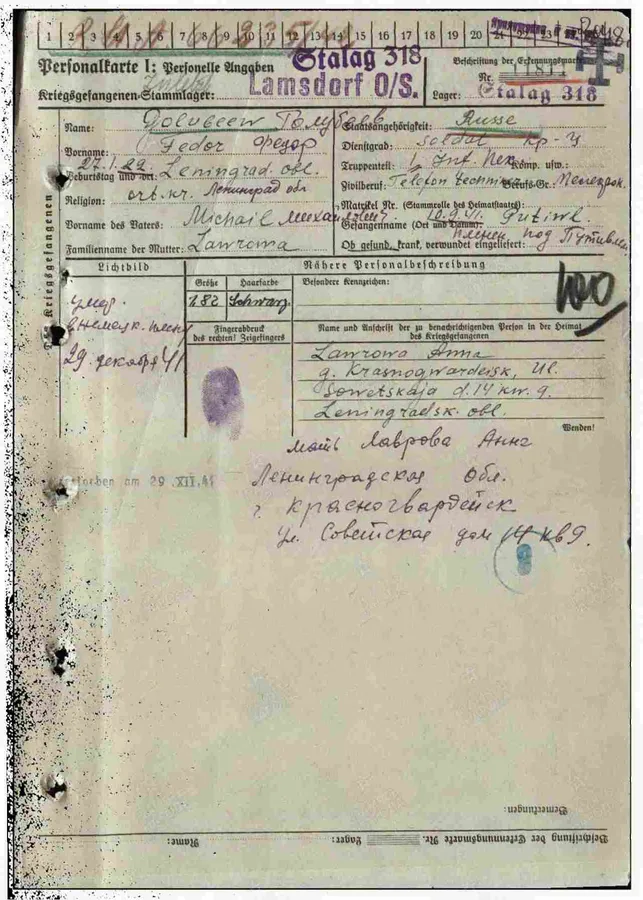 1 2 3 4 5 6 7 8 9 10 11 12 13 14 15 16 17 18 19 20 21 22 23
Personalkarte I: Personelle Angaben
Stalag 318
Beschriftung der Erkennungsmarke
Kriegsgefangenen-Stammlager:
Lamsdorf O/S.
Nr.
Lager: Stalag 318
Name: Golubeew Голубеев
Staatsangehörigkeit: Russe
Vorname: Fedor Федор
Dienstgrad: Soldat кр-ц
27.1.22. Leningrad obl.
Truppenteil: Inf. Komp. usw.:
Geburtstag und -ort:
Zivilberuf: Telefon Berufs-Gr.:
Religion: ort. кr. Ленинград обл
Matrikel Nr. (Stammrolle des Heimatstaates):
Vorname des Vaters: Michail
Gefangenname (Ort und Datum): 10.9.41. Putiwl.
плен под Путивлем
Familienname der Mutter: Lawrowa
Ob gesund, krank, verwundet eingeliefert:
Des Kriegsgefangenen
Lichtbild
Nähere Personalbeschreibung
Größe
Haarfarbe
Besondere Kennzeichen:
1.82
Schwarz
умер
в немецк. плену
29 декабря 41
Fingerabdruck
des rechten! Zeigefingers
Name und Anschrift der zu benachrichtigenden Person in der Heimat
des Kriegsgefangenen
Lawrowa Anna
g. Krasnogwardeisk, Ul.
Sowetskaja d.14 kw. 9.
Leningradsk. obl.
Wenden!
мать Лаврова Анна
Ленинградская обл.
г. Красногвардейск
ул. Советская дом 14 кв 9.
Gestorben am 29.XII.41
Bemerkungen:
Beschriftung der Erkennungsmarke Nr. Lager:
Name: